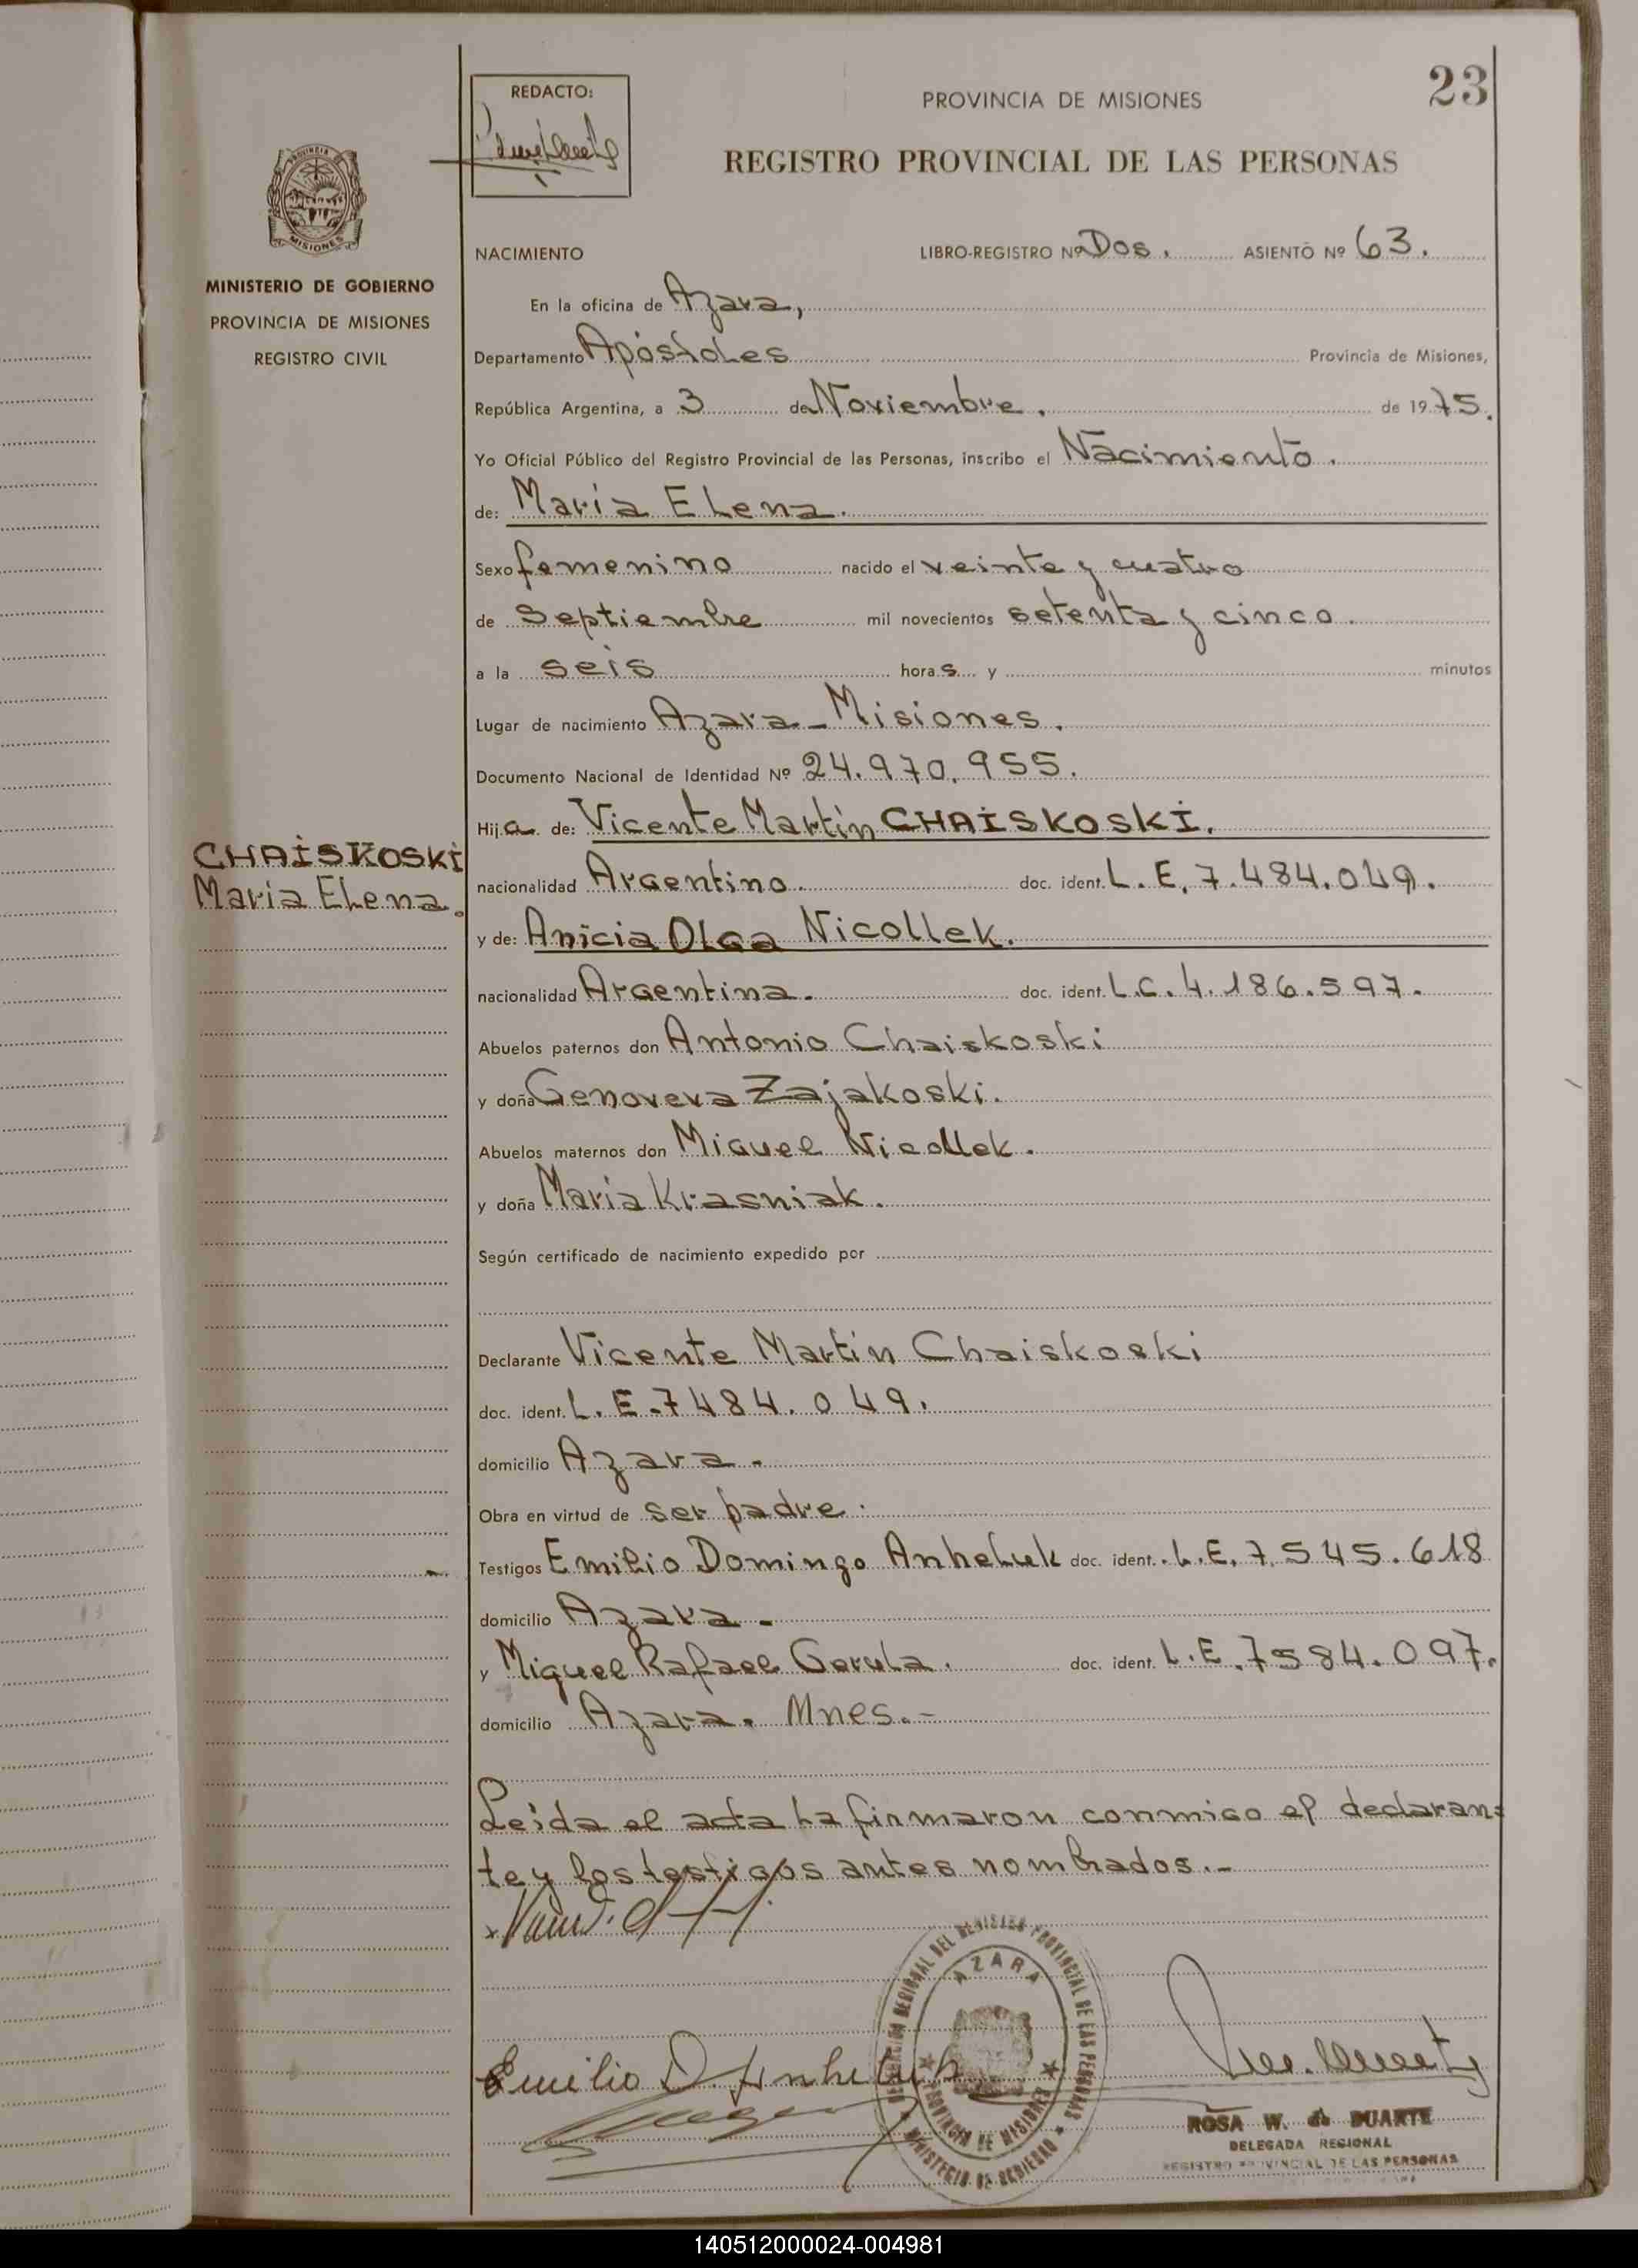 23
REDACTO:
PROVINCIA DE MISIONES
REGISTRO PROVINCIAL DE LAS PERSONAS
PROVINCIA DE
MISIONES
MINISTERIO DE GOBIERNO
PROVINCIA DE MISIONES
REGISTRO CIVIL
CHAISKOSKI
Maria Elena.
NACIMIENTO LIBRO-REGISTRO Nº Dos. ASIENTO Nº 63.
En la oficina de Azara,
Departamento Apóstoles Provincia de Misiones,
República Argentina, a 3 de Noviembre. de 1975.
Yo Oficial Público del Registro Provincial de las Personas, inscribo el Nacimiento.
de: María Elena.
Sexo femenino nacido el veinte y cuatro
de Septiembre mil novecientos setenta y cinco.
a la seis horas y minutos
Lugar de nacimiento Azara - Misiones.
Documento Nacional de Identidad Nº 24.970.955.
Hija de: Vicente Martín CHAISKOSKI.
nacionalidad Argentino. doc. ident. L.E. 7.484.049.
y de: Anicia Olga Nicollek.
nacionalidad Argentina. doc. ident. L.C. 4.186.597.
Abuelos paternos don Antonio Chaiskoski
y doña Genoveva Zajakoski.
Abuelos maternos don Miguel Nicollek.
y doña María Krasniak.
Según certificado de nacimiento expedido por
Declarante Vicente Martín Chaiskoski
doc. ident. L.E.7484.049.
domicilio Azara.
Obra en virtud de ser padre.
Testigos Emilio Domingo Anheluk doc. ident. L.E. 7.545.618
domicilio Azara.
y Miguel Rafael Gerula. doc. ident. L.E. 7584.097.
domicilio Azara. Mnes.-
Leída el acta la firmaron conmigo el declaran=
te y los testigos antes nombrados.-
DELEGACION REGIONAL DEL REGISTRO PROVINCIAL DE LAS PERSONAS
AZARA
PROVINCIA DE MISIONES
MINISTERIO DE GOBIERNO
Emilio D. Anheluk
ROSA W. de DUARTE
DELEGADA REGIONAL
REGISTRO PROVINCIAL DE LAS PERSONAS
140512000024-004981